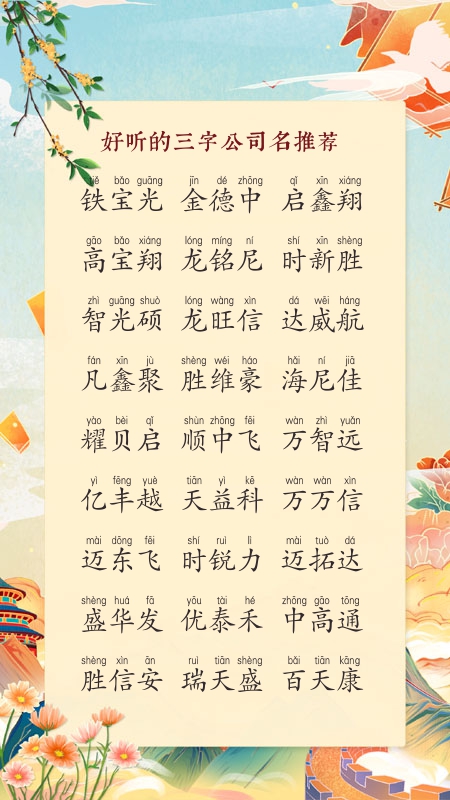 好听的三字公司名推荐
tiě bǎo guāng jīn dé zhōng qǐ xīn xiáng
铁宝光 金德中 启鑫翔
gāo bǎo xiáng lóng míng ní shí xīn shèng
高宝翔 龙铭尼 时新胜
zhì guāng shuò lóng wàng xìn dá wēi háng
智光硕 龙旺信 达威航
fán xīn jù shèng wéi háo hǎi ní jiā
凡鑫聚 胜维豪 海尼佳
yào bèi qǐ shùn zhōng fēi wàn zhì yuǎn
耀贝启 顺中飞 万智远
yì fēng yuè tiān yì kē wàn wàn xìn
亿丰越 天益科 万万信
mài dōng fēi shí ruì lì mài tuò dá
迈东飞 时锐力 迈拓达
shèng huá fā yōu tài hé zhōng gāo tōng
盛华发 优泰禾 中高通
shèng xìn ān ruì tiān shèng bǎi tiān kāng
胜信安 瑞天盛 百天康